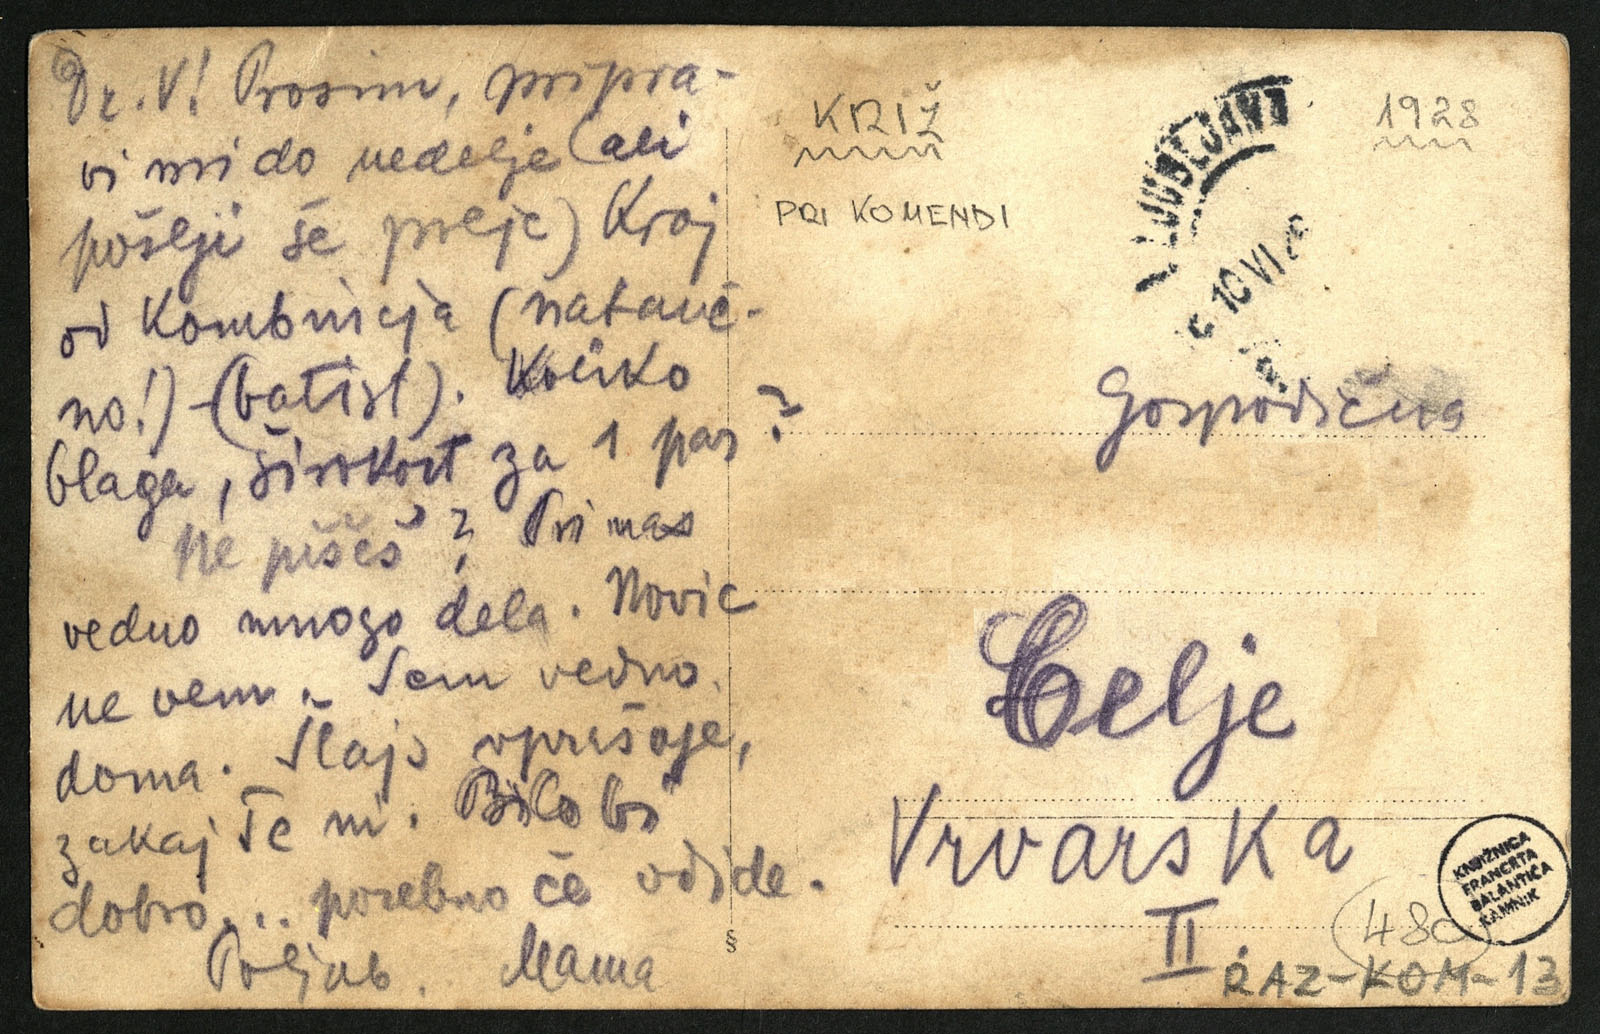 Dr. V! Prosim, pripra-
vi mi do nedelje (ali
pošlji še preje) Kroj
od Kombineja (natanč-
no!) - (batist). Koliko
blaga, širokost za 1 par?
Ne pišeš? Pri nas
vedno mnogo dela. Novic
ne vem. Sem vedno
doma. Slajs vprašaje,
zakaj Te ni. Bilo bi
dobro... posebno če odide.
Poljub. Mama
KRIŽ
PRI KOMENDI
1928
LJUBLJANA
10 VI
Gospodična
Celje
Vrvarska
II.
§
KNJIŽNICA
FRANCETA
BALANTIČA
KAMNIK
480
RAZ-KOM-13